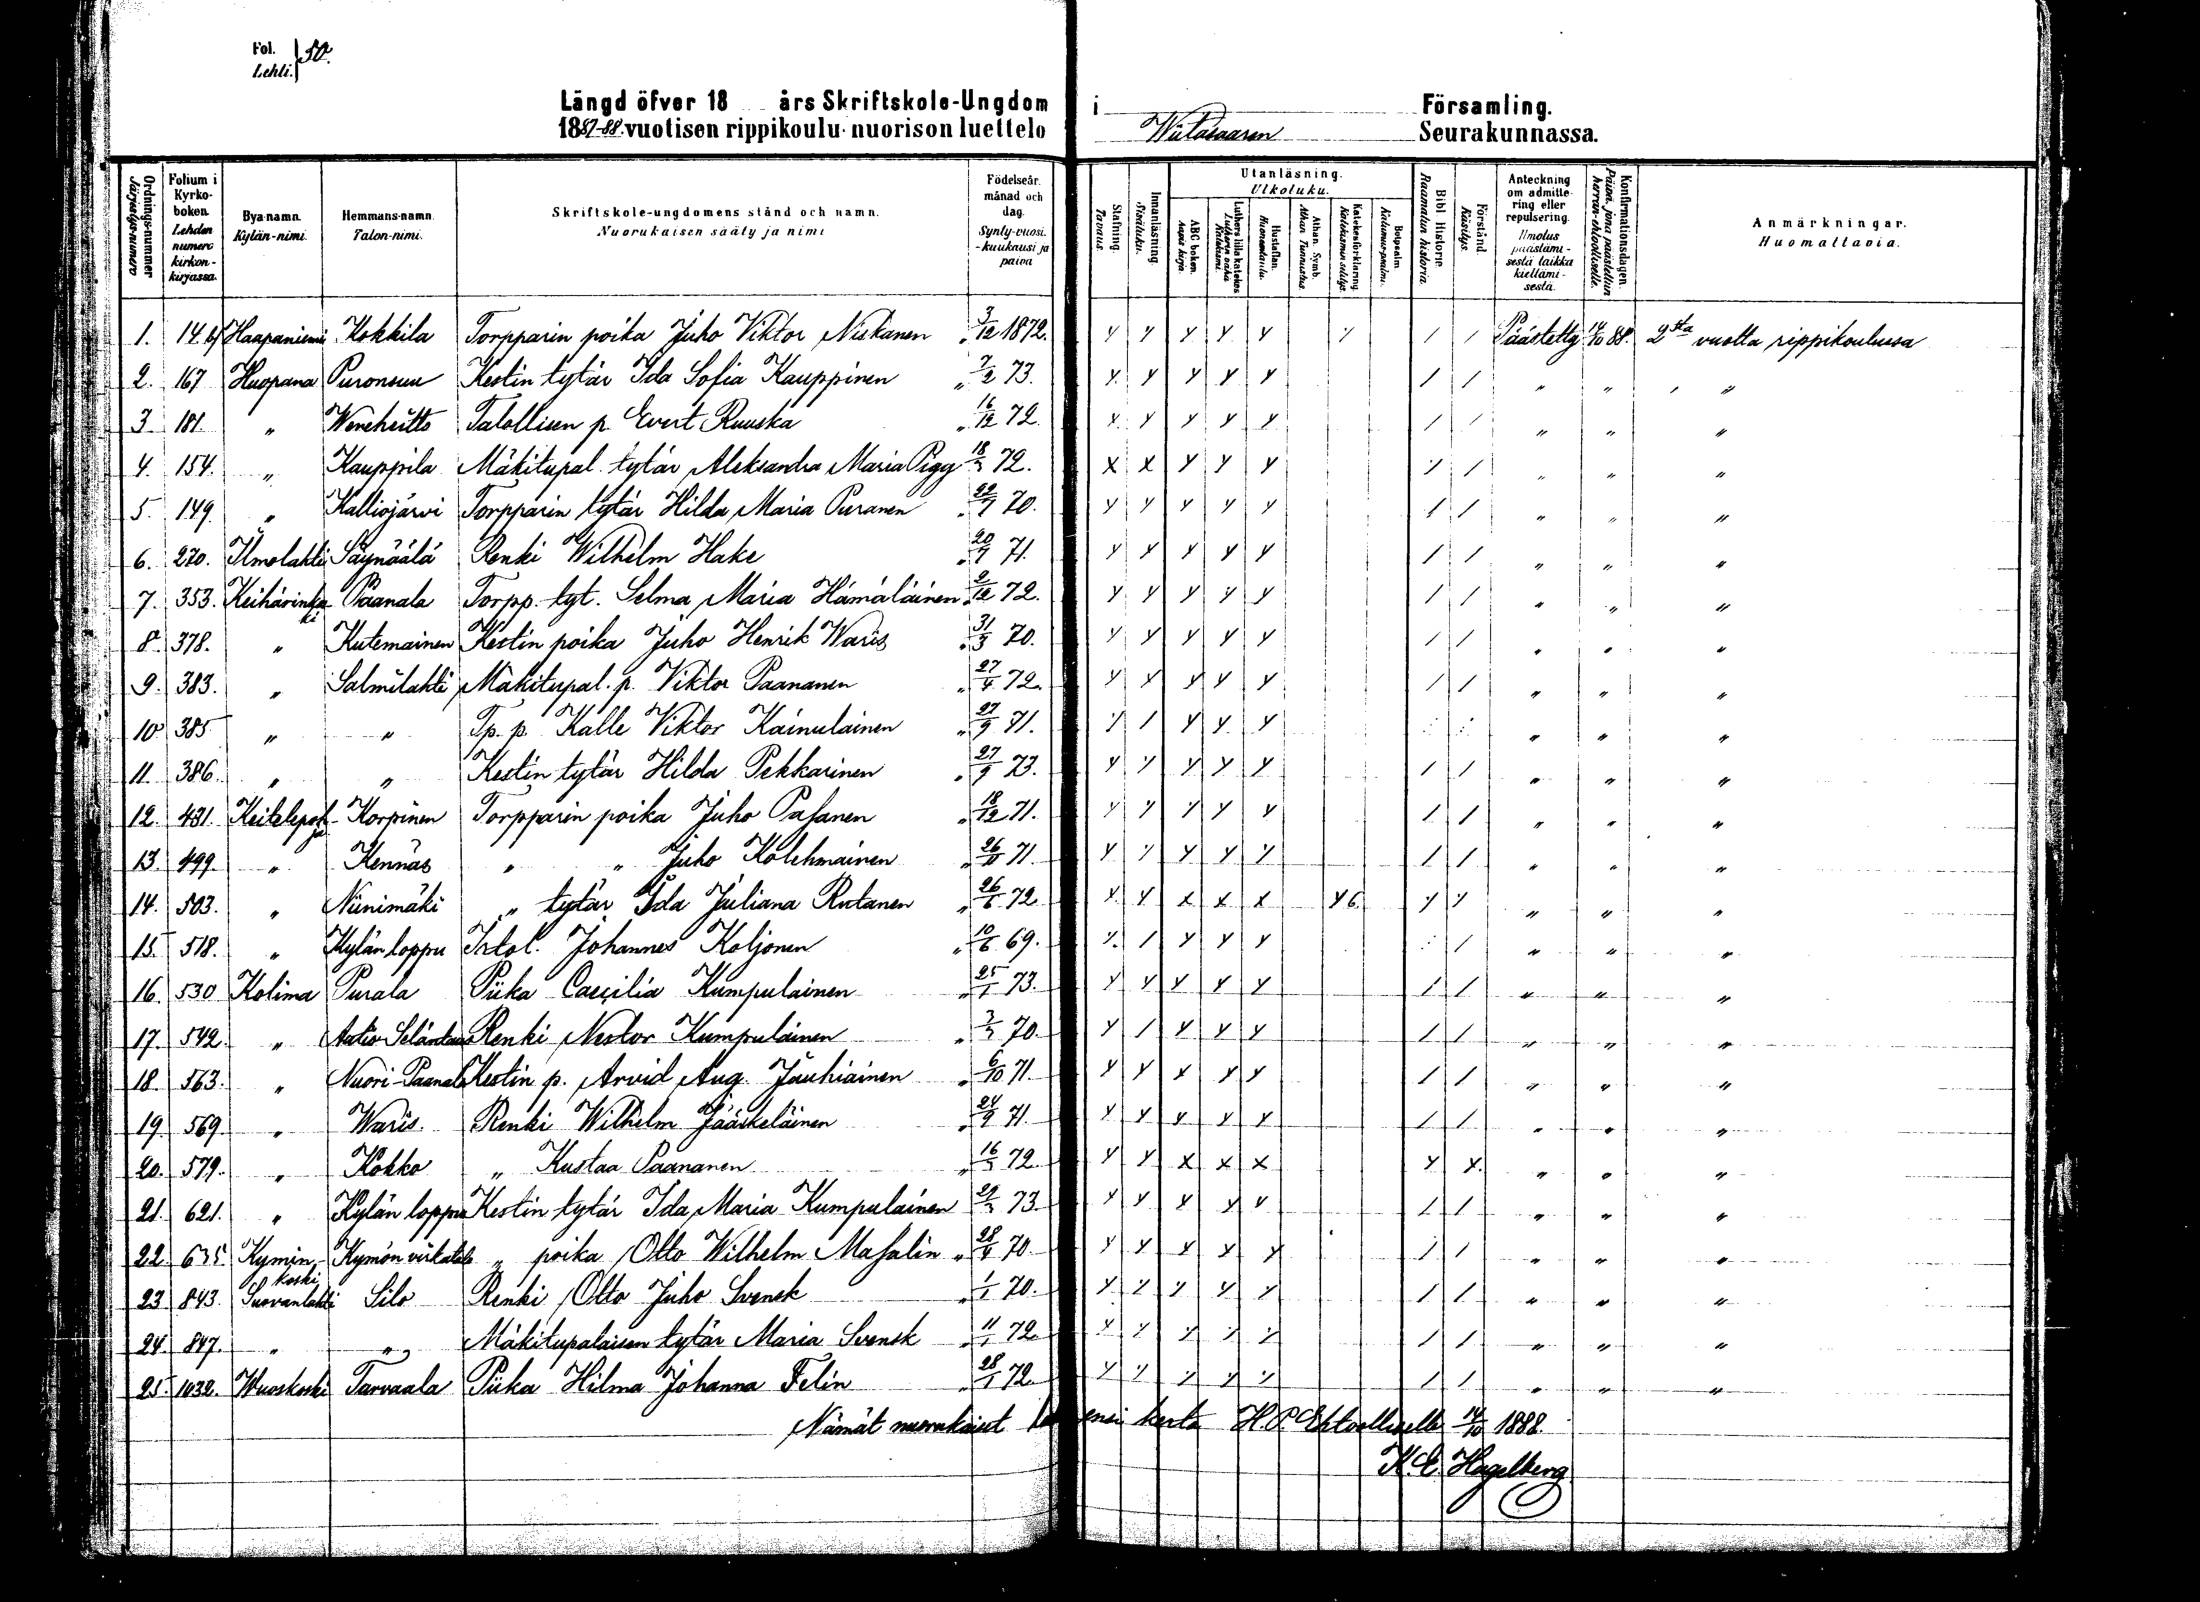 Fol. Lehti. 50.
Längd öfver 18 års Skriftskole-Ungdom i Församling.
1887-88 vuotisen rippikoulu-nuorison luettelo Wiitasaaren Seurakunnassa.
Ordnings-nummer Järjestys-numero
Folium i Kyrko-boken. Lehden numero kirkon-kirjassa.
Bya-namn. Kylän-nimi.
Hemmans-namn. Talon-nimi.
Skriftskole-ungdomens stånd och namn. Nuorukaisen sääty ja nimi
Födelseår. månad och dag. Synty-vuosi. -kuukausi ja päivä
Stafning. Tavaus.
Innanläsning. Sisäluku.
Utanläsning. Ulkoluku.
ABC boken. Aapis kirja.
Luthers lilla katekes Lutherin vähä Katekismi.
Hustaflan. Huoneentaulu.
Athan. Symb. Athan. Tunnustus.
Katekesförklaring. Katekismus selitys.
Botpsalm. Katumus-psalmi.
Bibl. Historie. Raamatun historia.
Förstånd. Käsitys.
Anteckning om admitte-ring eller repulsering. Ilmotus päästämi-sestä taikka kieltämi-sestä.
Konfirmationsdagen. Päivä, jona päästetiin herran-ehtoolliselle.
Anmärkningar. Huomattavia.
1. 14 Haapaniemi Kokkila Torpparin poika Juho Viktor Niskanen 3/12 1872. Päästetty 14/10 88. 2sta vuotta rippikoulussa
2. 167 Huopana Puronsuu Kestin tytär Ida Sofia Kauppinen " 7/2 73. " " "
3. 181. " Weneheitto Talollisen p. Evert Ruuska " 16/12 72. " " "
4. 154. " Kauppila Mäkitupal. tytär Aleksandra Maria Pigg 18/3 72. " " "
5. 149. " Kalliojärvi Torpparin tytär Hilda Maria Puranen " 22/7 70. " " "
6. 270. Ilmolahti Säynäälä Renki Wilhelm Hake " 20/7 71. " " "
7. 353. Keihärinki Paanala Torpp. tyt. Selma Maria Hämäläinen " 2/12 72. " " "
8. 378. " Kutemainen Kestin poika Juho Henrik Waris " 31/3 70. " " "
9. 383. " Salmilahti Mäkitupal. p. Viktor Paananen " 27/4 72. " " "
10 385 " " Tp. p. Kalle Viktor Kainulainen " 27/9 71. " " "
11. 386. " " Kestin tytär Hilda Pekkarinen " 27/9 73. " " "
12. 481. Keitelepohja Korpinen Torpparin poika Juho Pasanen " 18/12 71. " " "
13. 499. " Kennäs " " Juho Kolehmainen " 26/10 71. " " "
14. 503. " Niinimäki " tytär Ida Juliana Rutanen " 26/6 72 " " "
15. 518. " Kylän loppu Itstol. Johannes Koljonen " 10/6 69. " " "
16. 530 Kolima Purala Piika Caecilia Kumpulainen " 25/1 73. " " "
17. 542. " Renki Nestor Kumpulainen " 3/3 70. " " "
18. 563. " Nuori Paanala Kestin p. Arvid Aug. Jauhiainen " 6/10 71. " " "
19. 569. " Waris. Renki Wilhelm Jääskeläinen " 24/9 71. " " "
20. 579. " Kokko " Kustaa Paananen " 16/3 72 " " "
21. 621. " Kylän loppu Kestin tytär Ida Maria Kumpulainen 29/3 73. " " "
22 635 Kymin-koski Kymön virkatalo " poika Otto Wilhelm Masalin " 28/4 70. " " "
23 843. Suovanlahti Silo Renki Otto Juho Svensk " 1/1 70. " " "
24. 847. " " Mäkitupalaisen tytär Maria Svensk " 11/1 72. " " "
25. 1032. Wuoskoski Tarvaala Piika Hilma Johanna Felin " 28/1 72. " " "
Nämät nuorukaiset ensi kerta H. P. Ehtoolliselle 14/10 1888.
K. E. Hagelberg